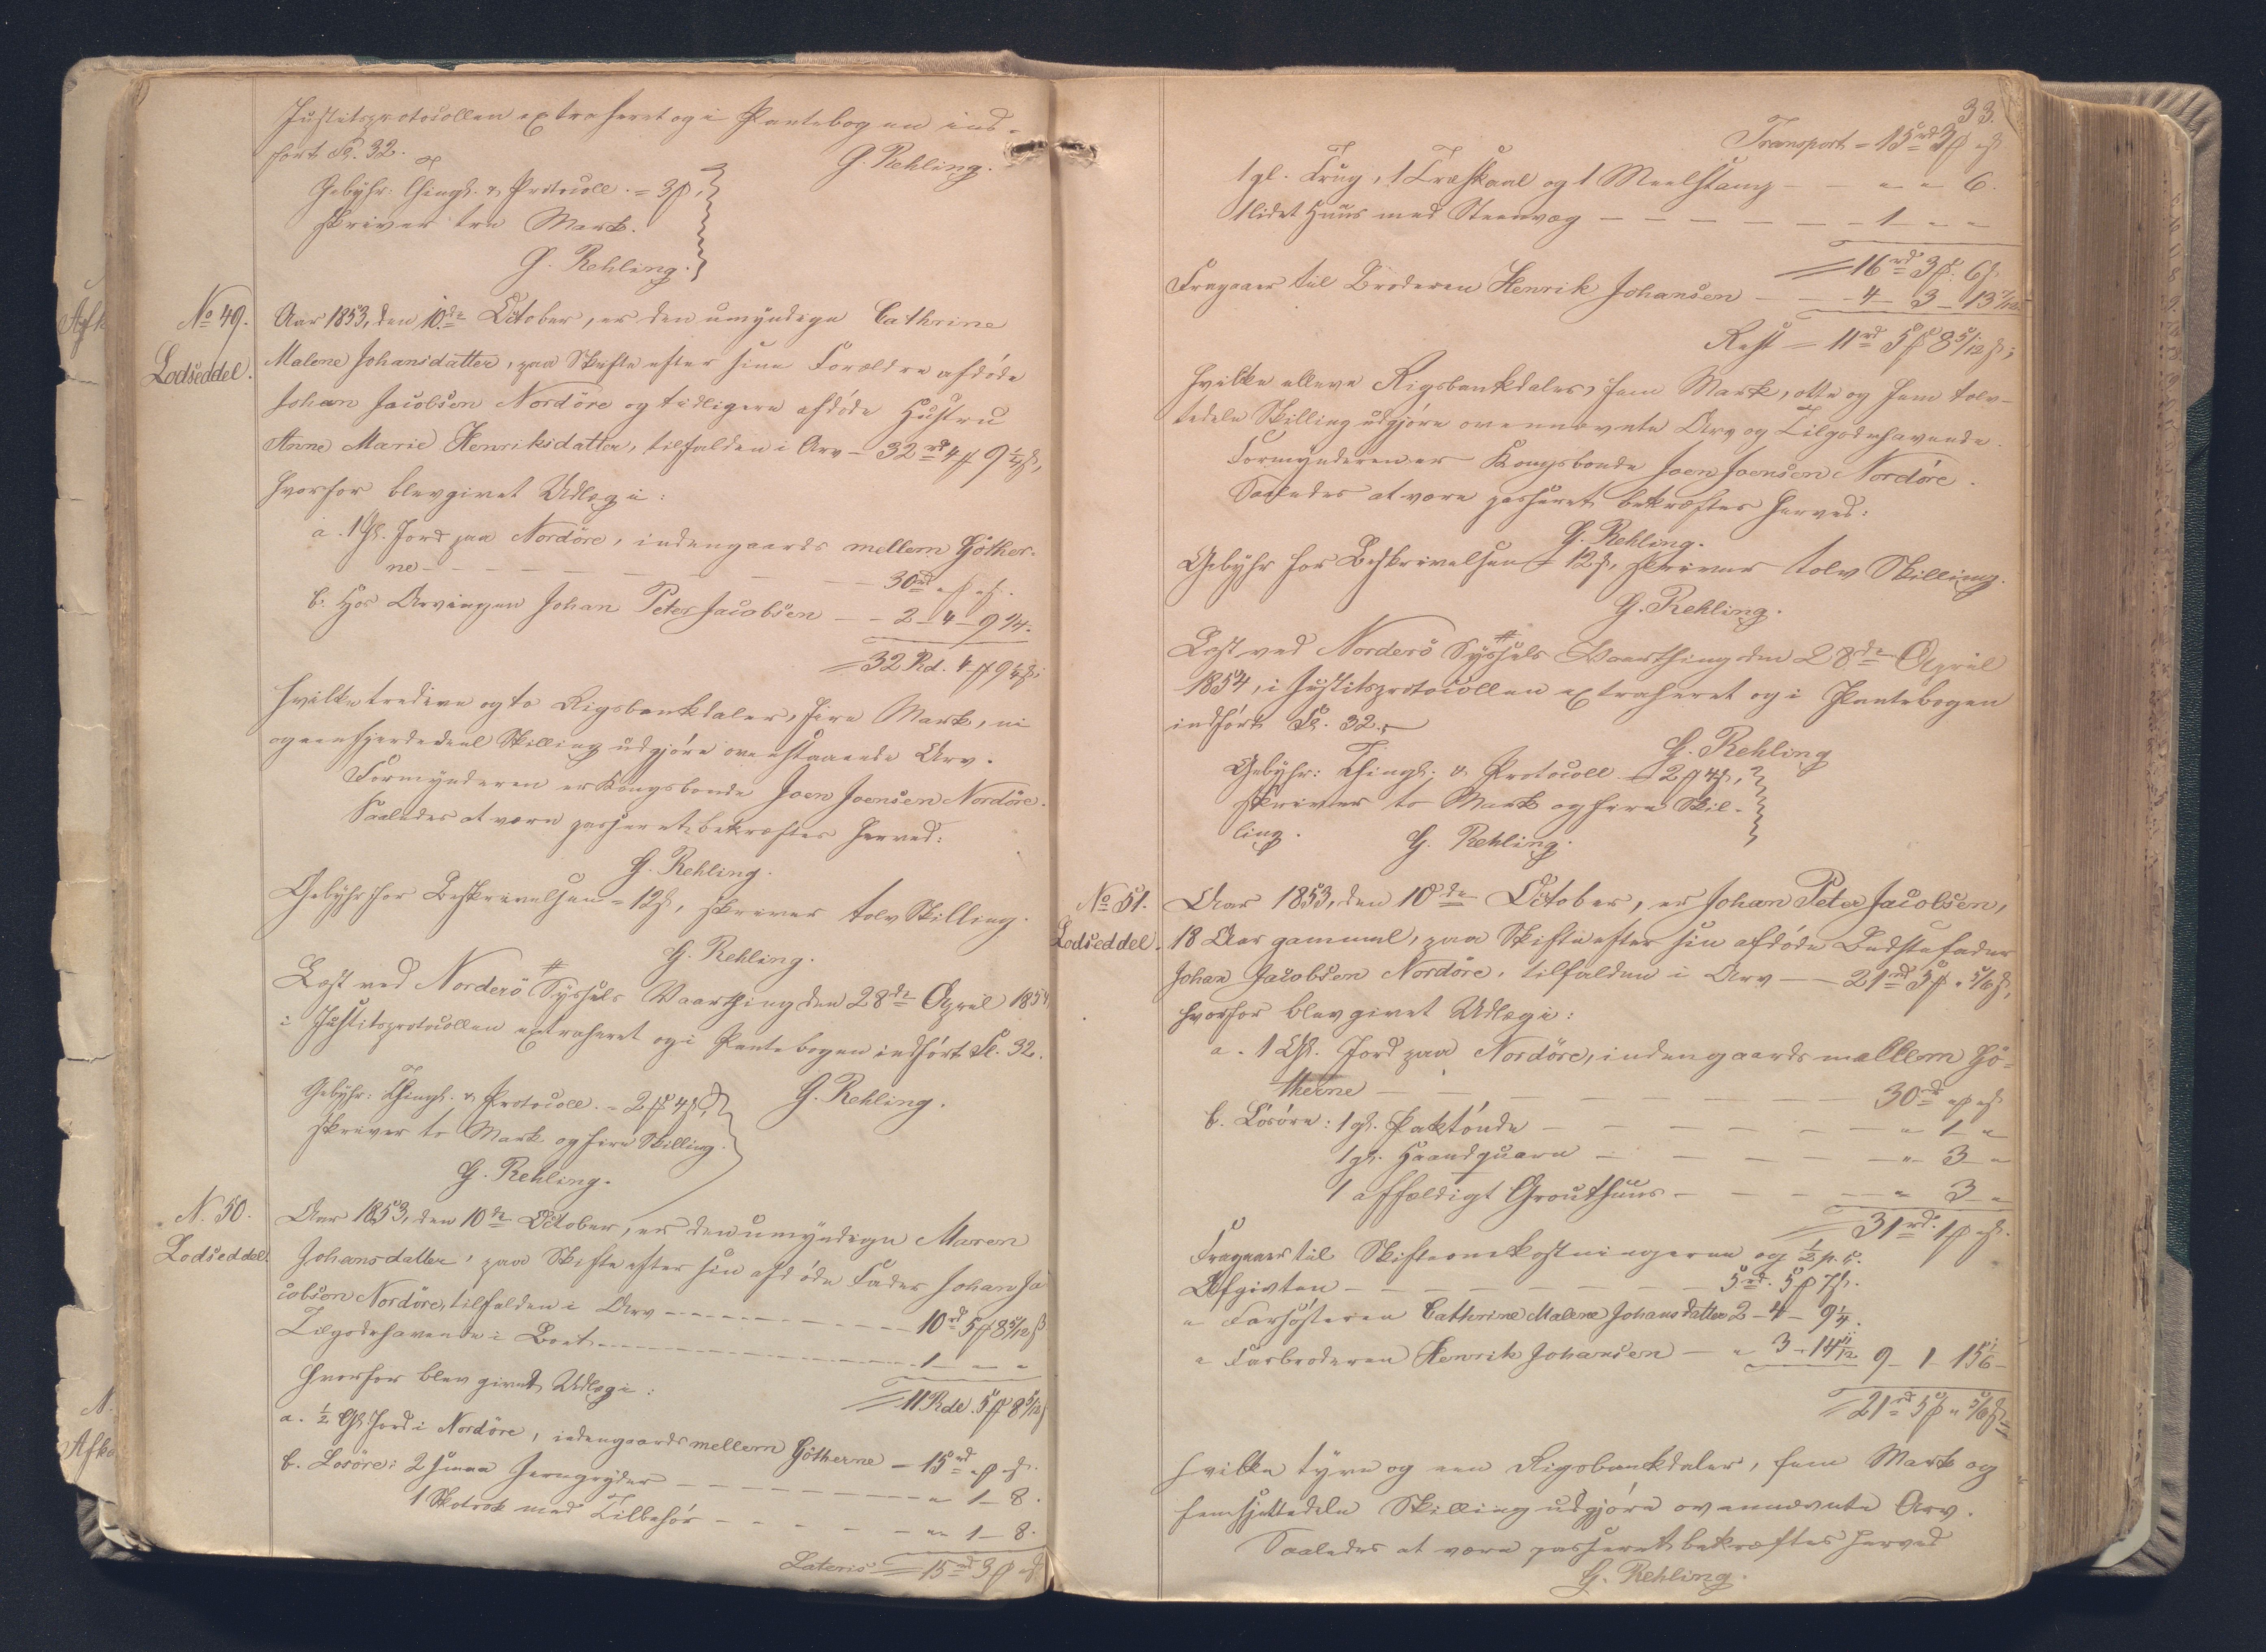 Justitsprotocollen extraheret og i Pantebogen ind-
fört Fol. 32.
G. Rehling.
Gebyhr: Thingl. & Protocoll. = 3 ℳ,
skriver tre Mark.
G. Rehling.
No 49.
Lodseddel.
Aar 1853, den 10de October, er den umyndige Cathrine
Malene Johansdatter, paa Skifte efter sine Forældre afdöde
Johan Jacobsen Nordöre og tidligere afdöde Hustru
Anne Marie Henriksdatter, tilfalden i Arv – 32 rd 4 ℳ 9 1/4 ß,
hvorfor blev givet Udlæg i:
a. 1 Gl. Jord paa Nordöre, indengaards mellem Göther-
ne – – – 30 rd „ ℳ „ ß.
b. Hos Arvingen Johan Peter Jacobsen – – 2 – 4 – 9 1/4.
= 32 Rd. 4 ℳ 9 1/4 ß;
hvilke tredive og to Rigsbankdaler, fire Mark, ni
og een fjerdedeel Skilling udgjöre ovenstaaende Arv.
Formynderen er Kongsbonde Joen Joensen Nordöre.
Saaledes at være passeret, bekræftes herved:
G. Rehling.
Gebyhr for Beskrivelsen = 12 ß, skriver tolv Skilling.
G. Rehling.
Læst ved Norderö Syssels Vaarthing den 28de April 1854,
i Justitsprotocollen extraheret og i Pantebogen indfört Fol. 32.
G. Rehling.
Gebyhr: Thingl. & Protocoll. = 2 ℳ 4 ß,
skriver to Mark og fire Skilling.
G. Rehling.
N. 50.
Lodseddel.
Aar 1853, den 10de October, er den umyndige Maren
Johansdatter, paa Skifte efter sin afdöde Fader Johan Ja-
cobsen Nordöre, tilfalden i Arv – – – 10 rd 5 ℳ 8 5/12 ß
Tilgodehavende i Boet – – – 1 – „ – „
= 11 Rdl. 5 ℳ 8 5/12 ß
hvorfor blev givet Udlæg i:
a. 1/2 Gl. Jord i Nordöre, indengaards mellem Götherne – 15 rd „ ℳ „ ß.
b. Losöre: 2 smaa Jerngryder – – – „ 1 – 8.
1 Skotrok med Tilbehör – – – „ 1 – 8.
Lateris = 15 rd 3 ℳ „ ß
33.
Transport = 15 rd 3 ℳ „ ß.
1 gl. Trug, 1 Træskaal og 1 Meelstamp – – „ „ 6.
1 lidet Huus med Steenvæg – – – 1 „ „
= 16 rd 3 ℳ 6 ß.
Fragaaer til Broderen Henrik Johansen – – 4 – 3 – 13 7/12
Rest = 11 rd 5 ℳ 8 5/12 ß;
hvilke elleve Rigsbankdaler, fem Mark, otte og fem tolv-
tedele Skilling udgjöre ovennævnte Arv og Tilgodehavende.
Formynderen er Kongsbonde Joen Joensen Nordöre.
Saaledes at være passeret, bekræftes herved:
G. Rehling.
Gebyhr for Beskrivelsen = 12 ß, skriver tolv Skilling.
G. Rehling.
Læst ved Norderö Syssels Vaarthing den 28de April
1854, i Justitsprotocollen extraheret og i Pantebogen
indfört Fol. 32.
G. Rehling
Gebyhr: Thingl. & Protocoll = 2 ℳ 4 ß,
skriver to Mark og fire Skil-
ling.
G. Rehling.
No 51.
Lodseddel.
Aar 1853, den 10de October, er Johan Peter Jacobsen,
18 Aar gammel, paa Skifte efter sin afdöde Bedstefader
Johan Jacobsen Nordöre, tilfalden i Arv – – 21 rd 5 ℳ „ 5/6 ß,
hvorfor blev givet Udlæg i:
a. 1 Gl. Jord paa Nordöre, indengaards mellem Gö-
therne – – – 30 rd „ ℳ „ ß
b. Lösöre: 1 gl. Paktönde – – – „ 1 „
1 gl. Haandquærn – – – „ 3 „
1 affældigt Grouthuus – – – „ 3 „
= 31 rd. 1 ℳ „ ß.
Fragaaer til Skifteomkostningerne og 1/2 p. C.
Afgivten – – – 5 rd. 5 ℳ 7 ß.
„ Farsösteren Cathrine Malene Johansdatter 2 – 4 – 9 1/4.
„ Farbroderen Henrik Johansen – „ 3 – 14 11/12 9 – 1 – 15 1/6 –
= 21 rd 5 ℳ „ 5/6 ß =
hvilke tyve og een Rigsbankdaler, fem Mark og
femsjettedele Skilling udgjöre ovennævnte Arv.
Saaledes at være passeret, bekræftes herved
G. Rehling.